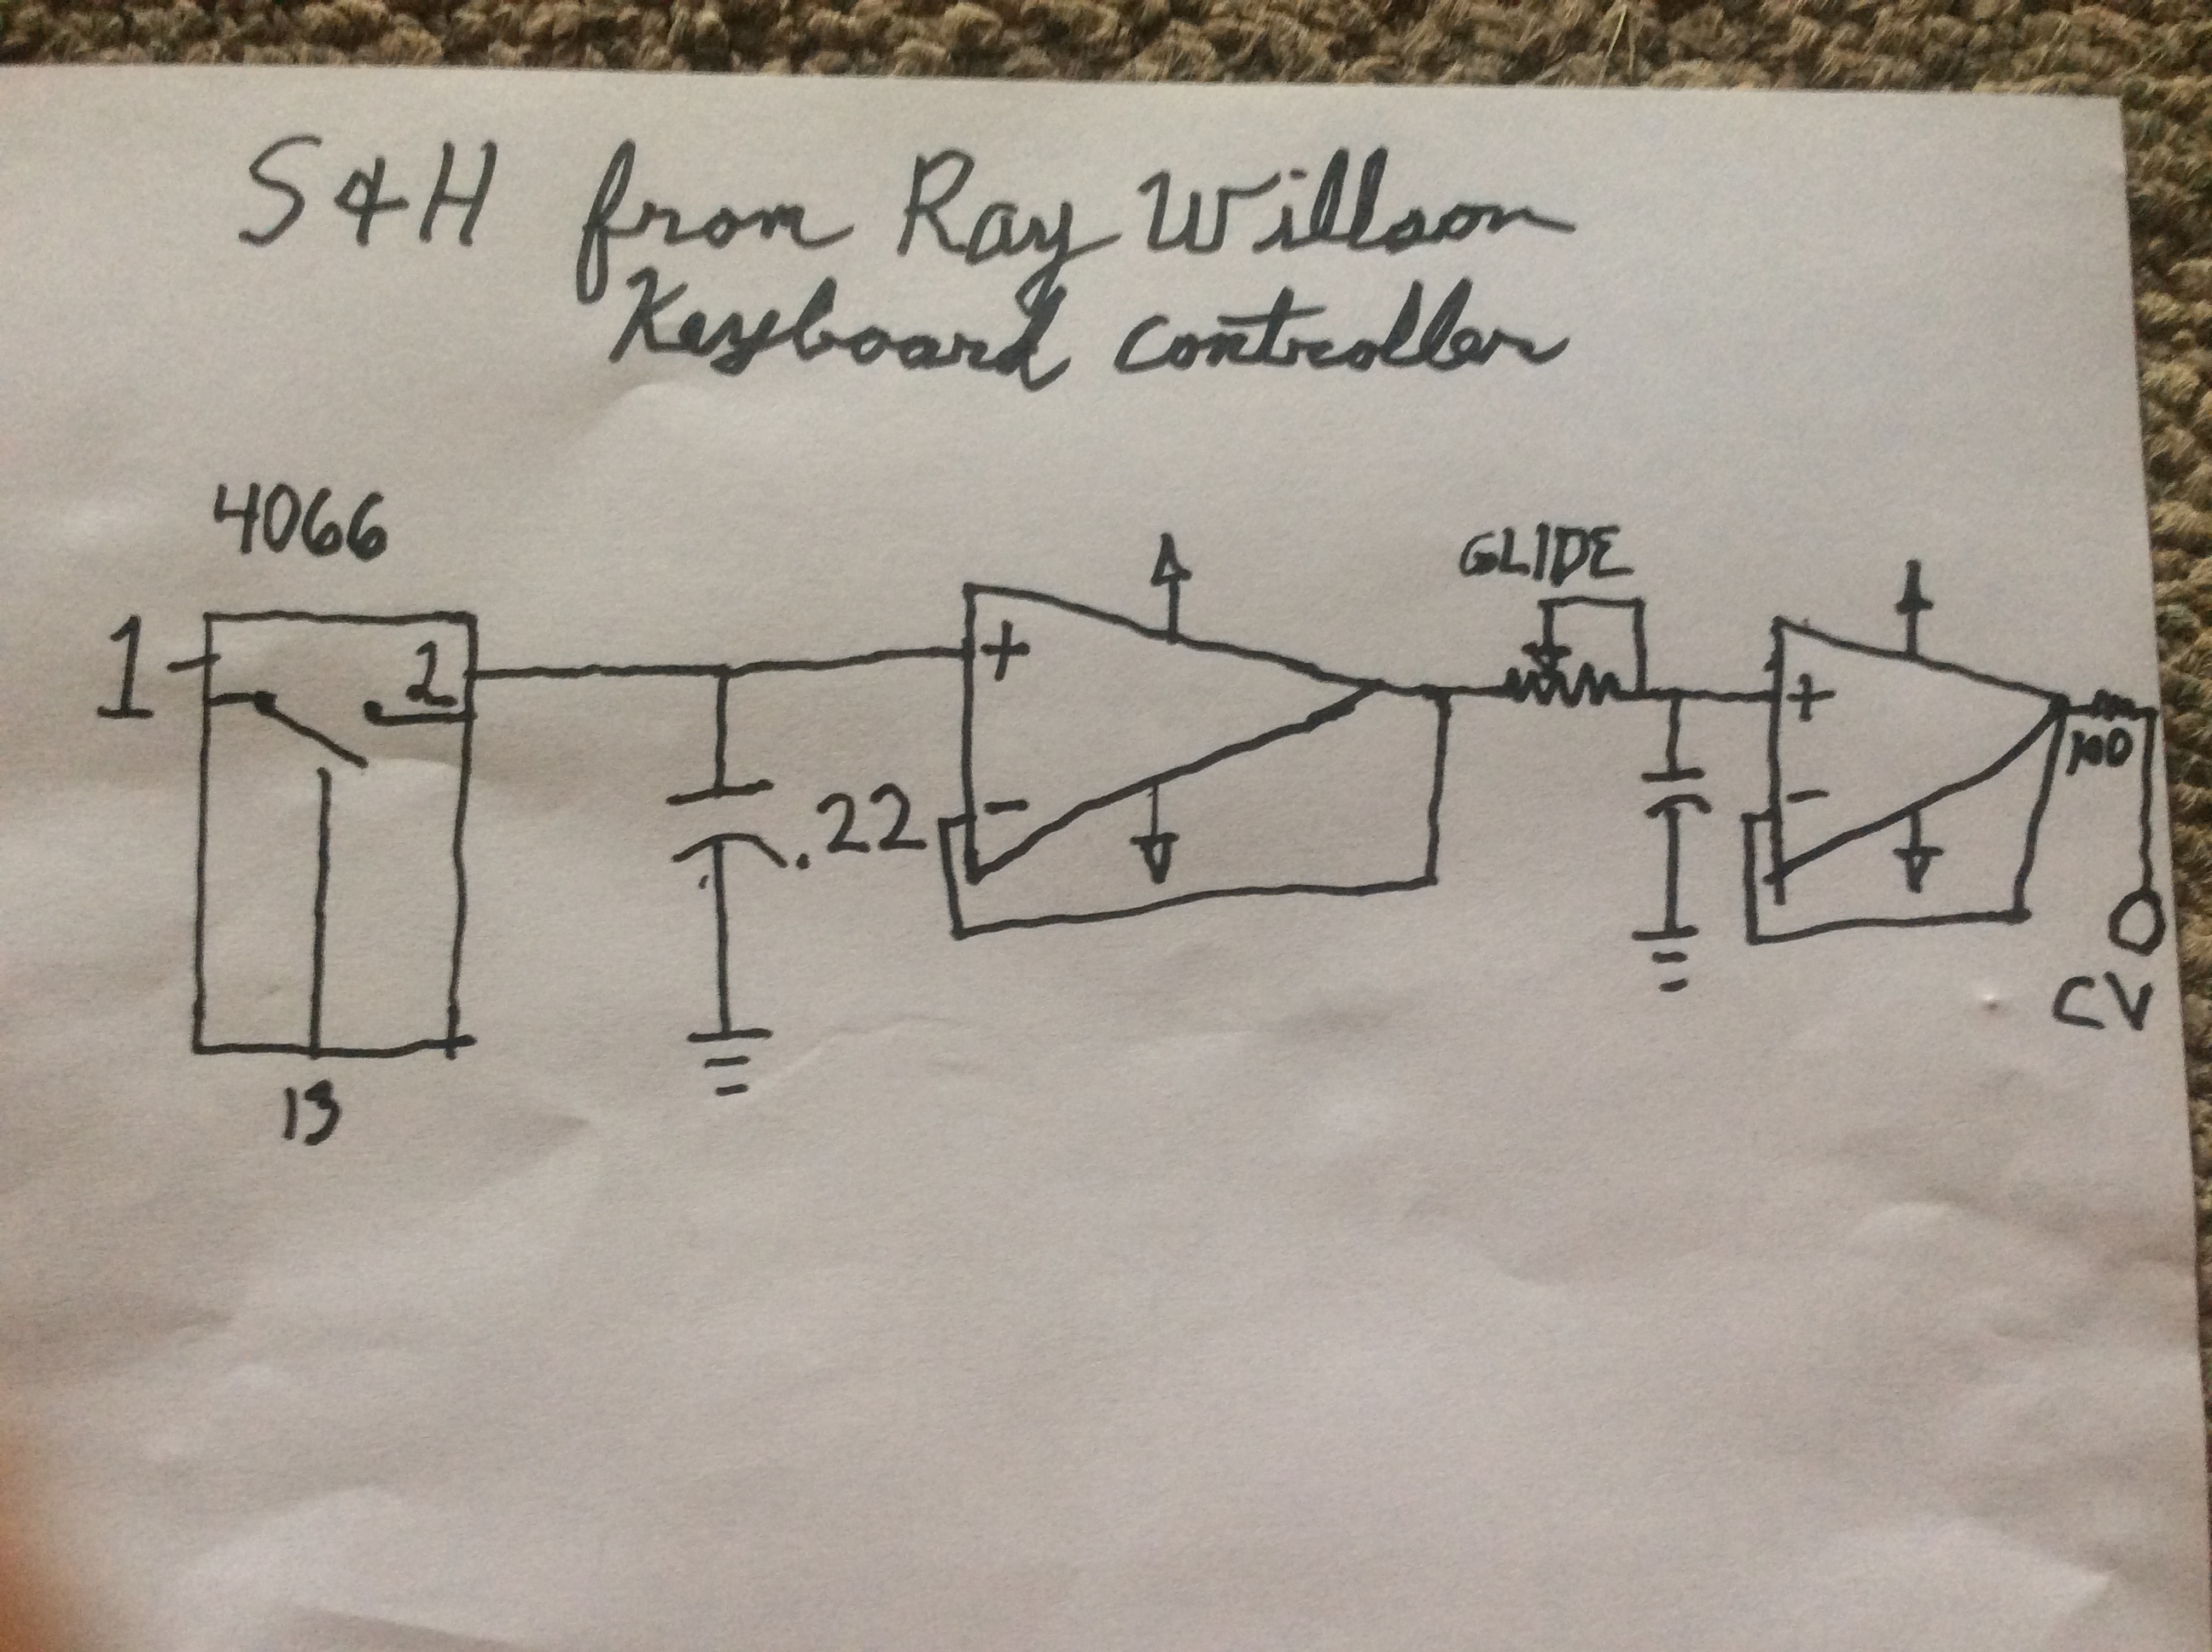 S&H from Ray Willson
Keyboard controller
4066
GLIDE
1
2
+
+
100
-
-
.22
CV
13